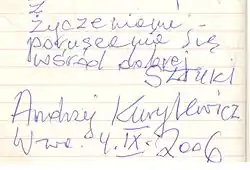 Z
życzeniami
poruszania się
wśród dobrej
Sztuki
Andrzej Kurylewicz
W-wa. 4.IX.2006